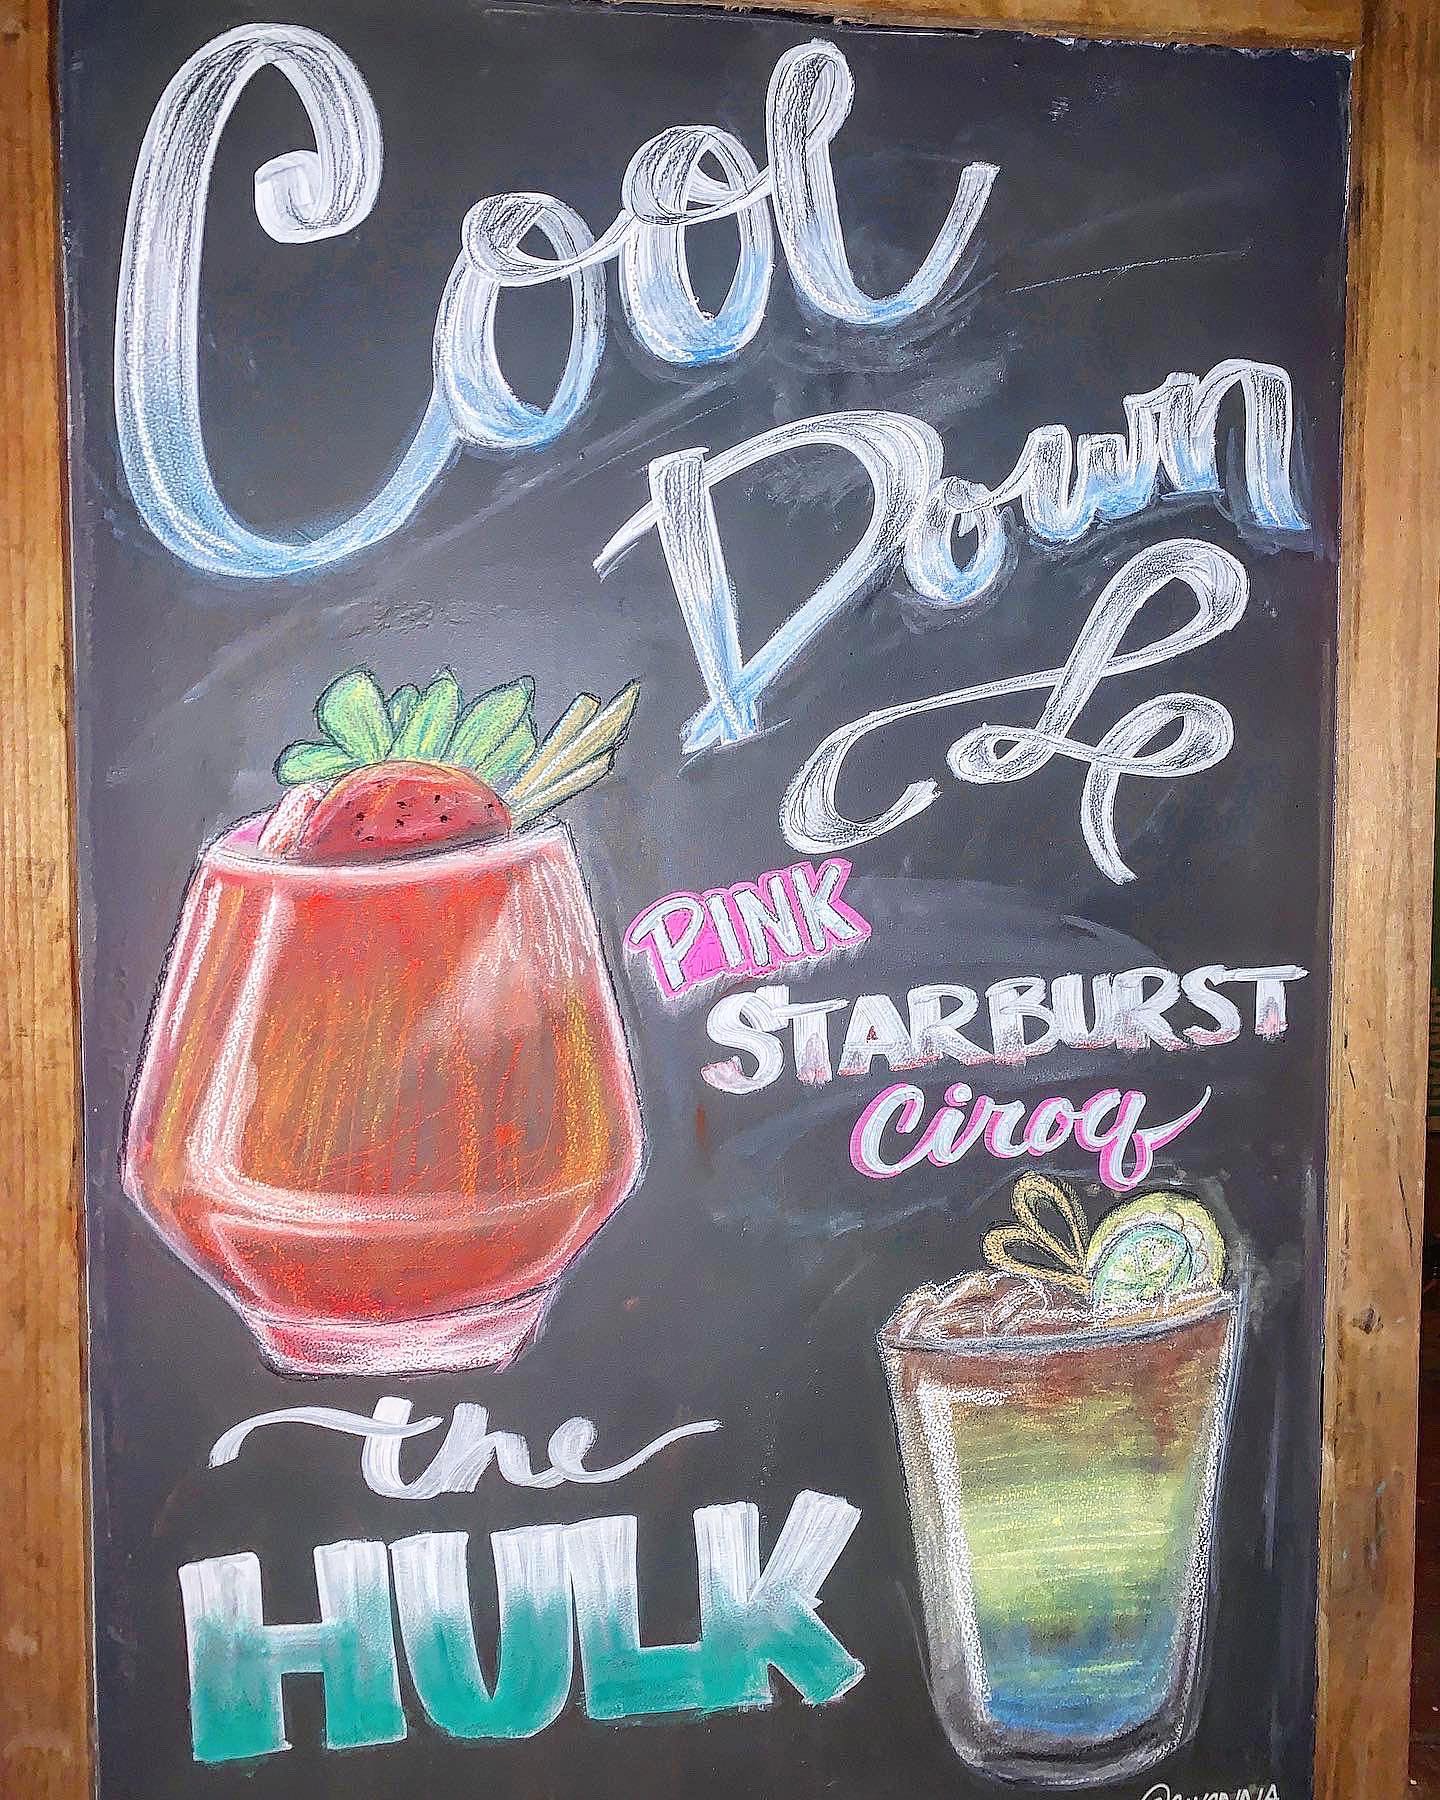 Cool
Down
&
PINK
STARBURST
Ciroq
the
HULK